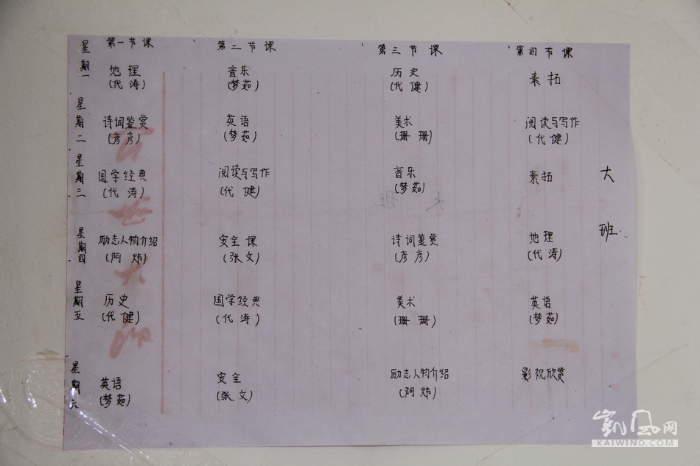 第一节课 第二节课 第三节课 第四节课
星期一 地理 音乐 历史 素拓
(代涛) (梦茹) (代健)
星期二 诗词鉴赏 英语 美术 阅读与写作
(彦彦) (梦茹) (珊珊) (代健)
星期三 国学经典 阅读与写作 音乐 素拓
(代涛) (代健) (梦茹)
大班
星期四 励志人物介绍 安全课 诗词鉴赏 地理
(阿炜) (张文) (彦彦) (代涛)
星期五 历史 国学经典 美术 英语
(代健) (代涛) (珊珊) (梦茹)
星期六 英语 安全 励志人物介绍 影视欣赏
(梦茹) (张文) (阿炜)
凯风网
KAIWIND.COM